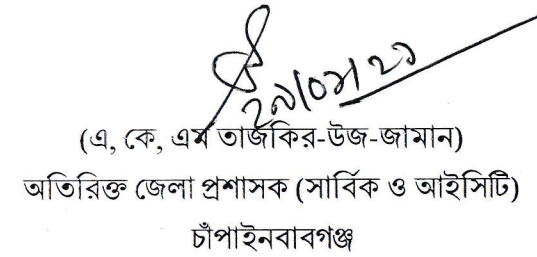 (এ, কে, এম তাজকির-উজ-জামান)
অতিরিক্ত জেলা প্রশাসক (সার্বিক ও আইসিটি)
চাঁপাইনবাবগঞ্জ